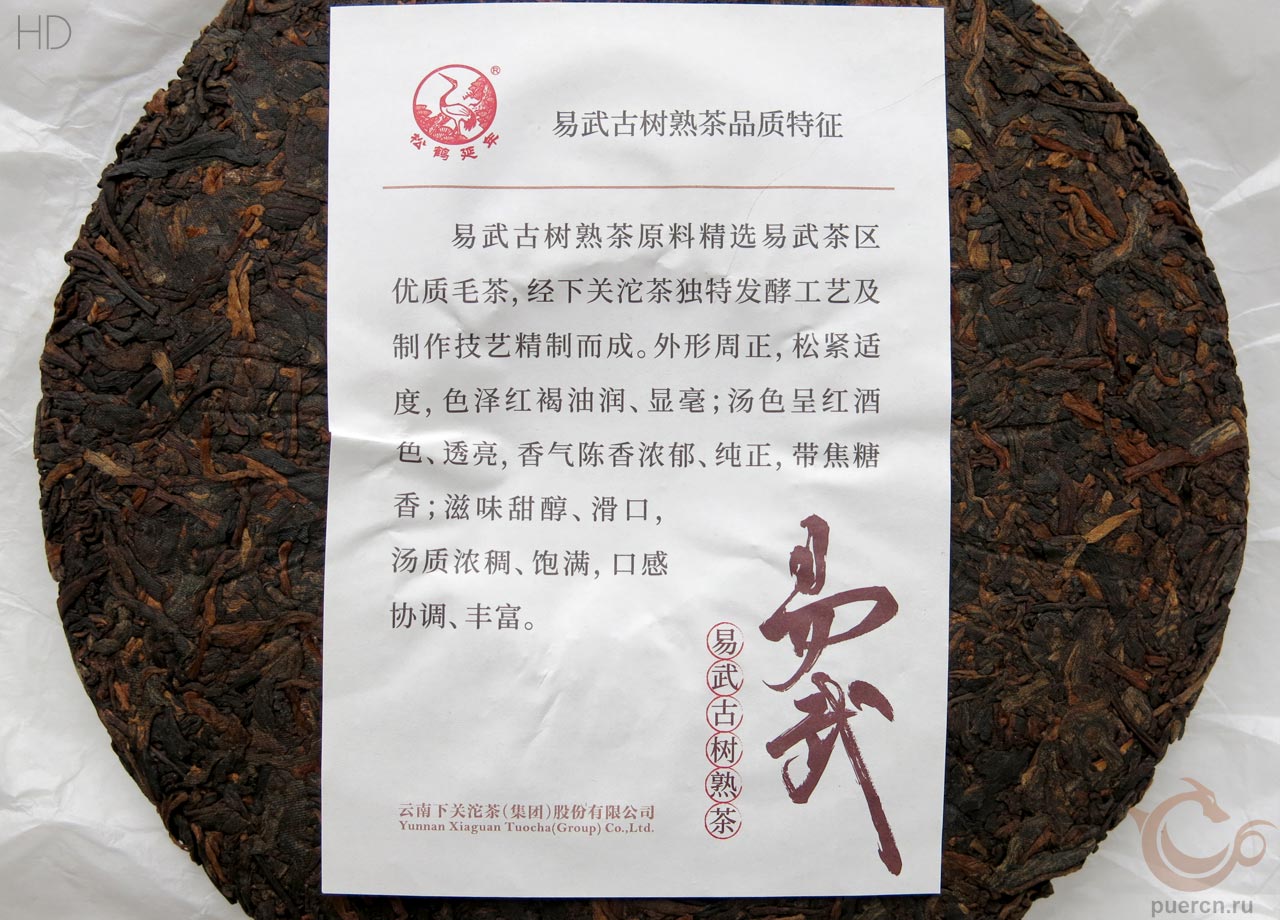 HD
®
松鹤延年
易武古树熟茶品质特征
易武古树熟茶原料精选易武茶区
优质毛茶,经下关沱茶独特发酵工艺及
制作技艺精制而成。外形周正,松紧适
度,色泽红褐油润、显毫;汤色呈红酒
色、透亮,香气陈香浓郁、纯正,带焦糖
香;滋味甜醇、滑口,
汤质浓稠、饱满,口感
协调、丰富。
易武
易武古树熟茶
云南下关沱茶(集团)股份有限公司
Yunnan Xiaguan Tuocha(Group) Co.,Ltd.
puercn.ru